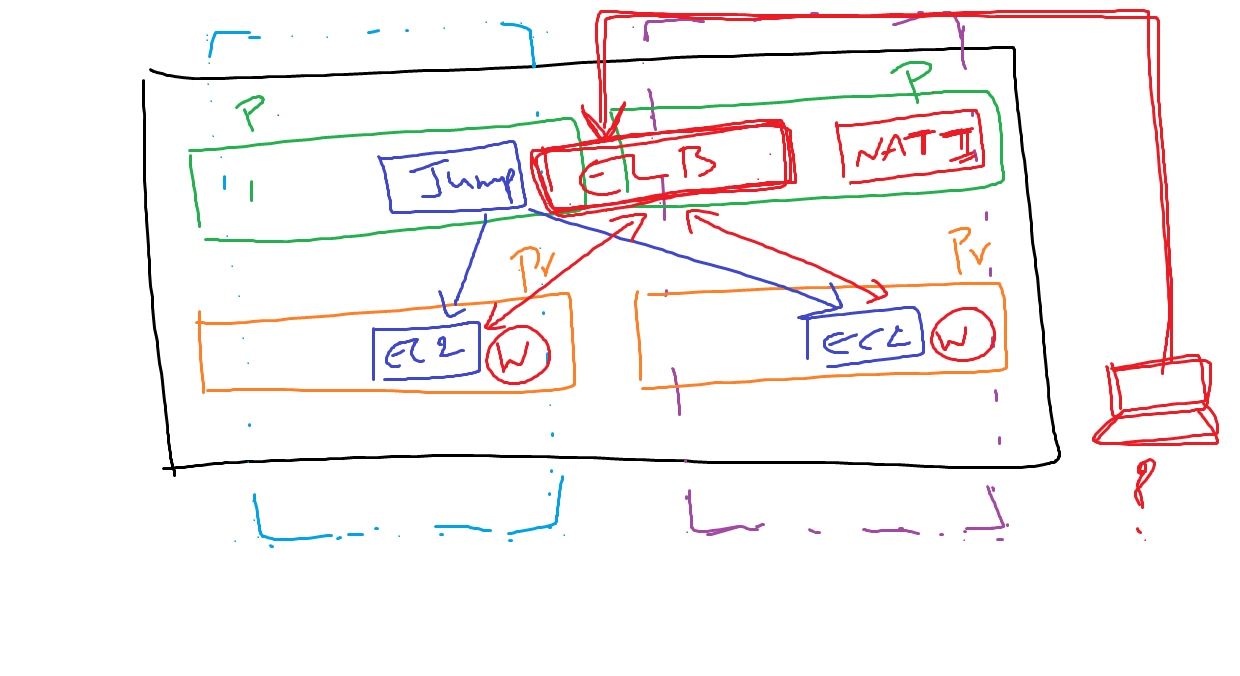 P
P
Jump
ELB
NAT I
Pv
Pv
EC2
W
EC2
W